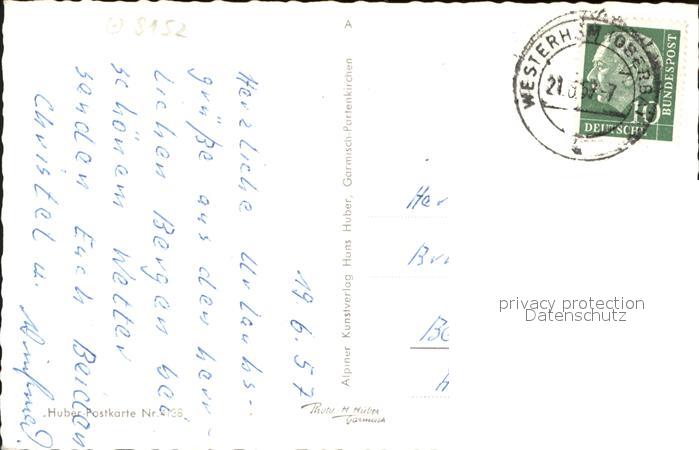 8152
A
WESTERHAM (OBERB
21.6.57-7
10
DEUTSCHE
BUNDESPOST
19.6.57
Herzliche Urlaubs-
grüße aus den herr-
lichen Bergen bei
schönem Wetter
senden Euch Beiden
Christel u.
Alpiner Kunstverlag Hans Huber, Garmisch-Partenkirchen
Her
Bru
privacy protection
Datenschutz
Huber-Postkarte Nr.
Photo-H. Huber
Garmisch